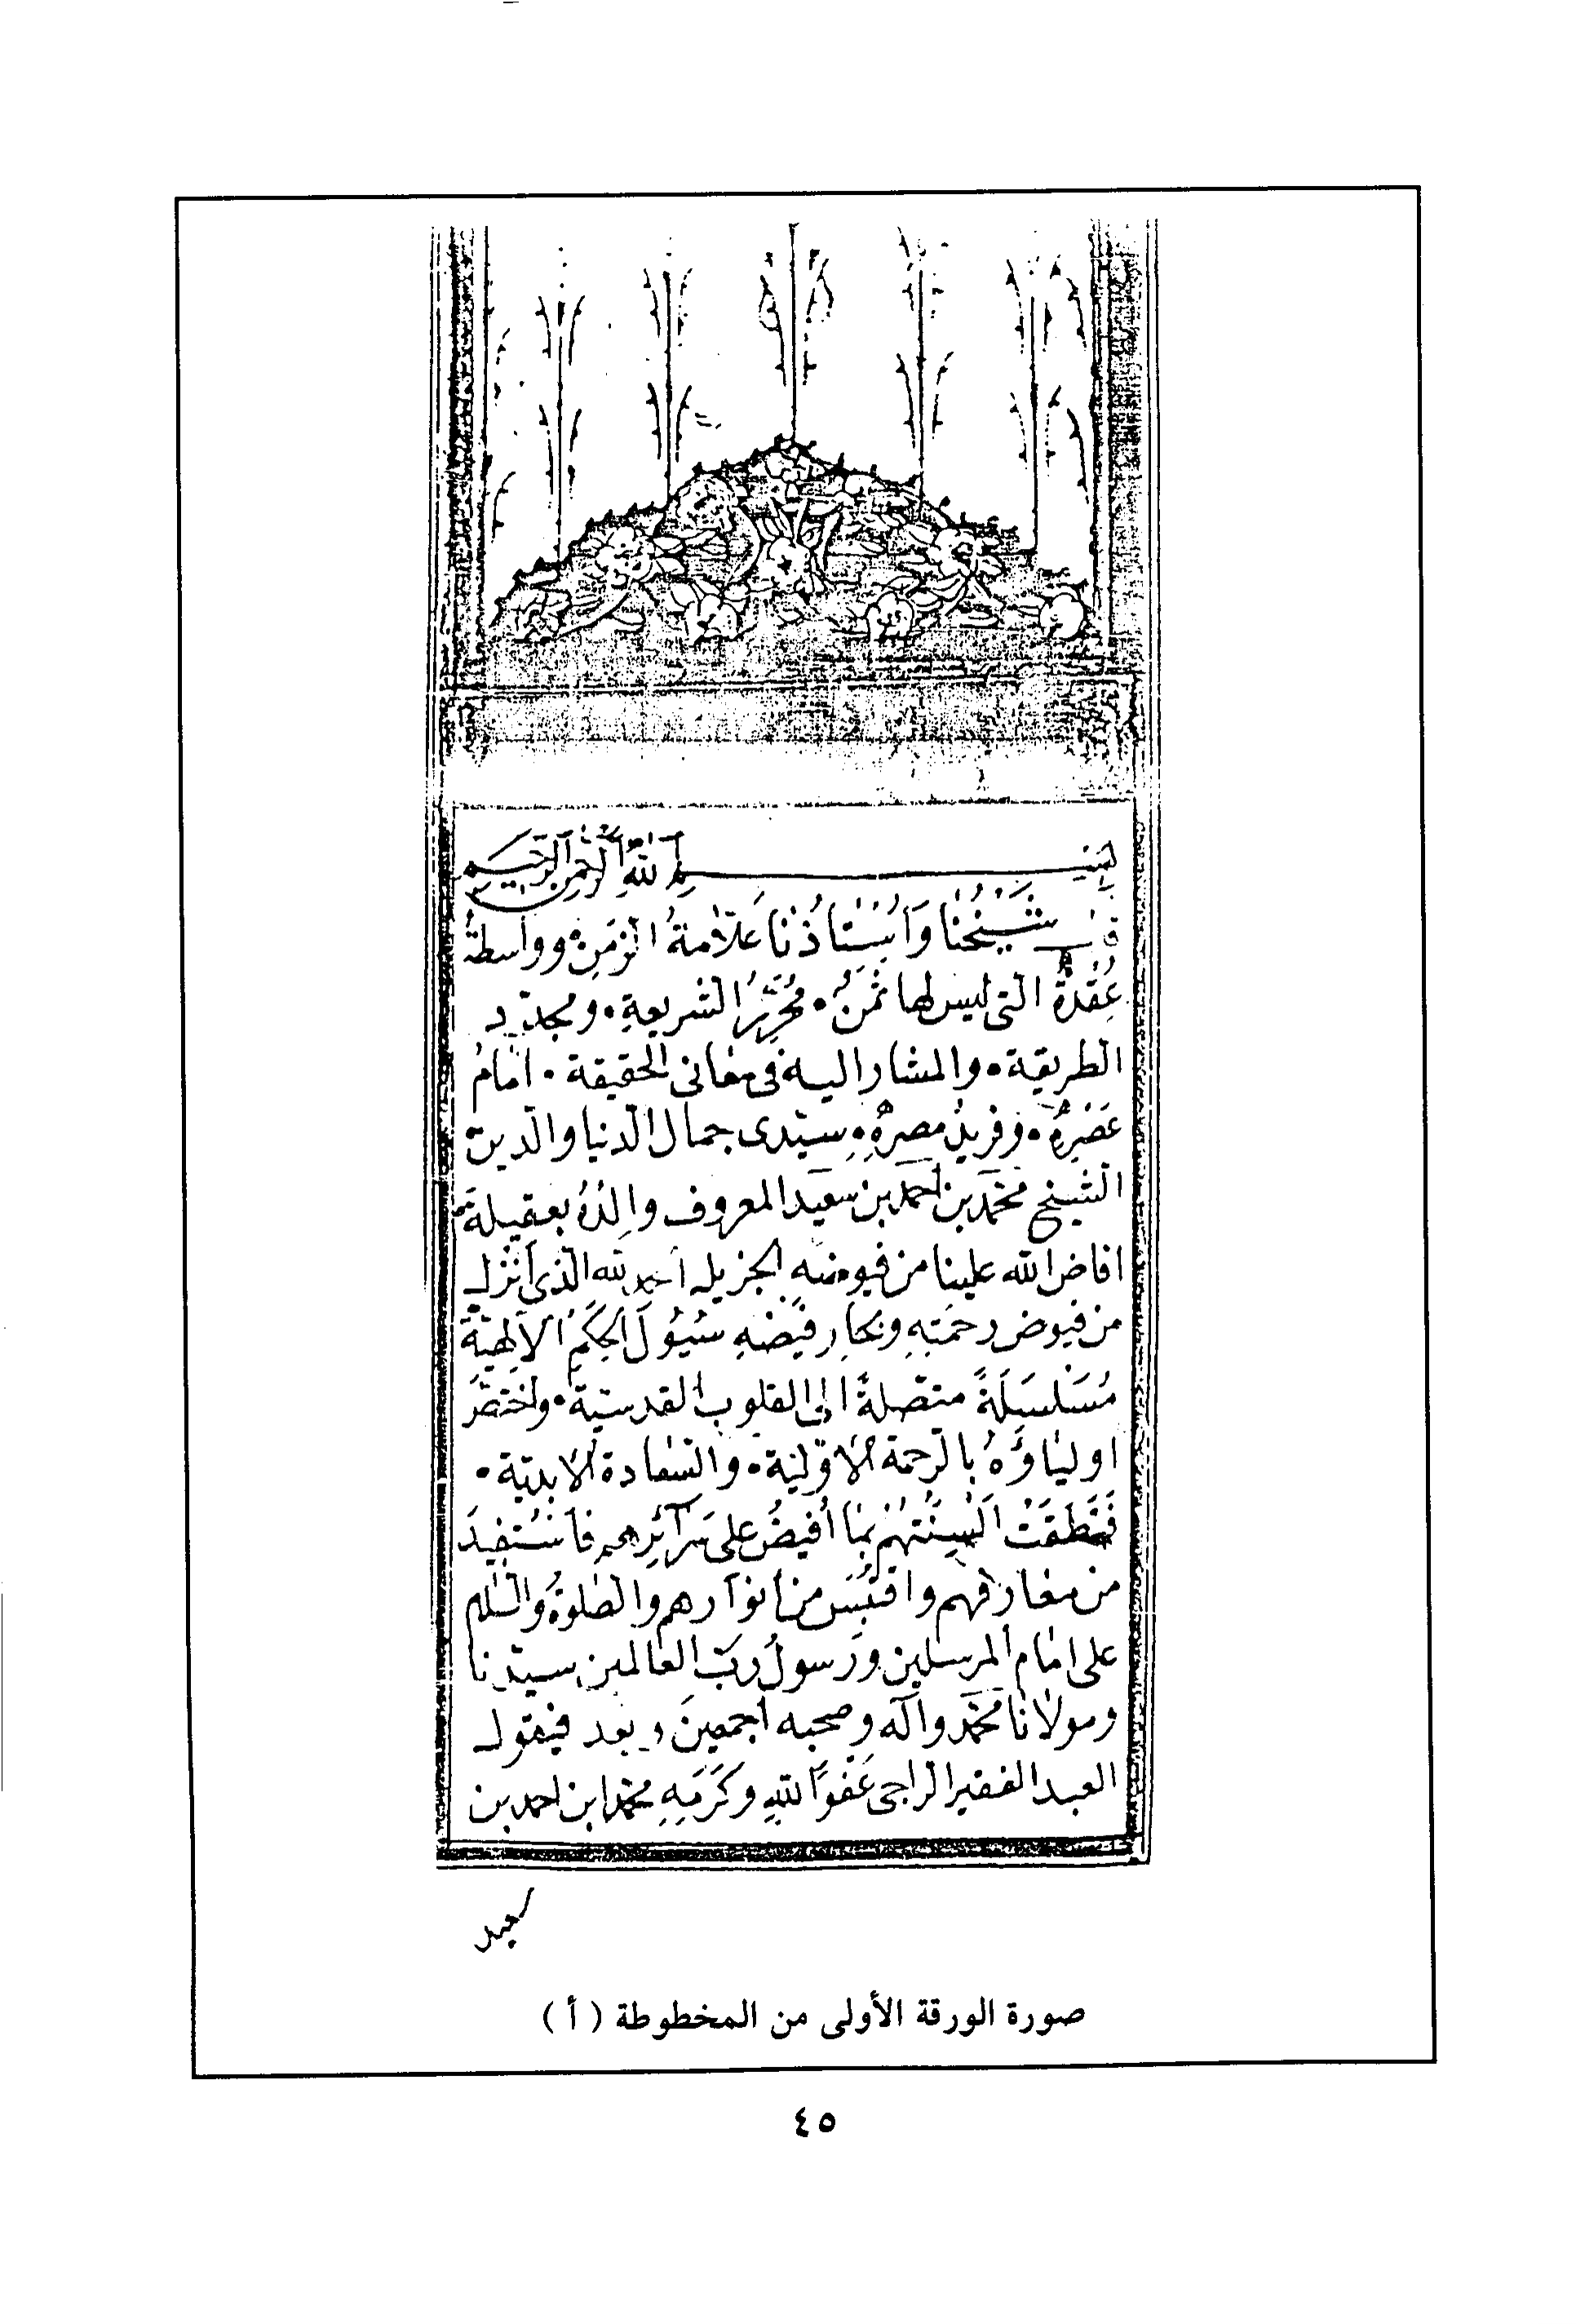 بسم الله الرحمن الرحيم
قال شيخنا وأستاذنا علامة الزمن وواسطة
عقده التي ليس لها ثمن • محرر الشريعة • ومجدد
الطريقة • والمشار اليه في معاني الحقيقة • امام
عصره • وفريد مصره • سيدى جمال الدنيا والدين
الشيخ محمد بن احمد بن سعيد المعروف والده بعقيلة
افاض الله علينا من فيوضه الجزيله احمد لله الذى أنزل
من فيوض رحمته وبحار فيضه سيول الحكم الالهية
مسلسلة متصلة الى القلوب القدسية • واختص
اولياؤه بالرحمة الاولية • والسعادة الابدية •
فنطقت ألسنتهم بما أفيض على سرآئرهم فاستفيد
من معارفهم واقتبس من أنوآرهم والصلوة والسلام
على امام المرسلين ورسول رب العالمين سيدنا
ومولانا محمد وآله وصحبه اجمعين وبعد فيقول
العبد الفقير الراجى عفو الله وكرمه محمد ابن احمد بن
سعيد
صورة الورقة الأولى من المخطوطة ( أ )
٤٥